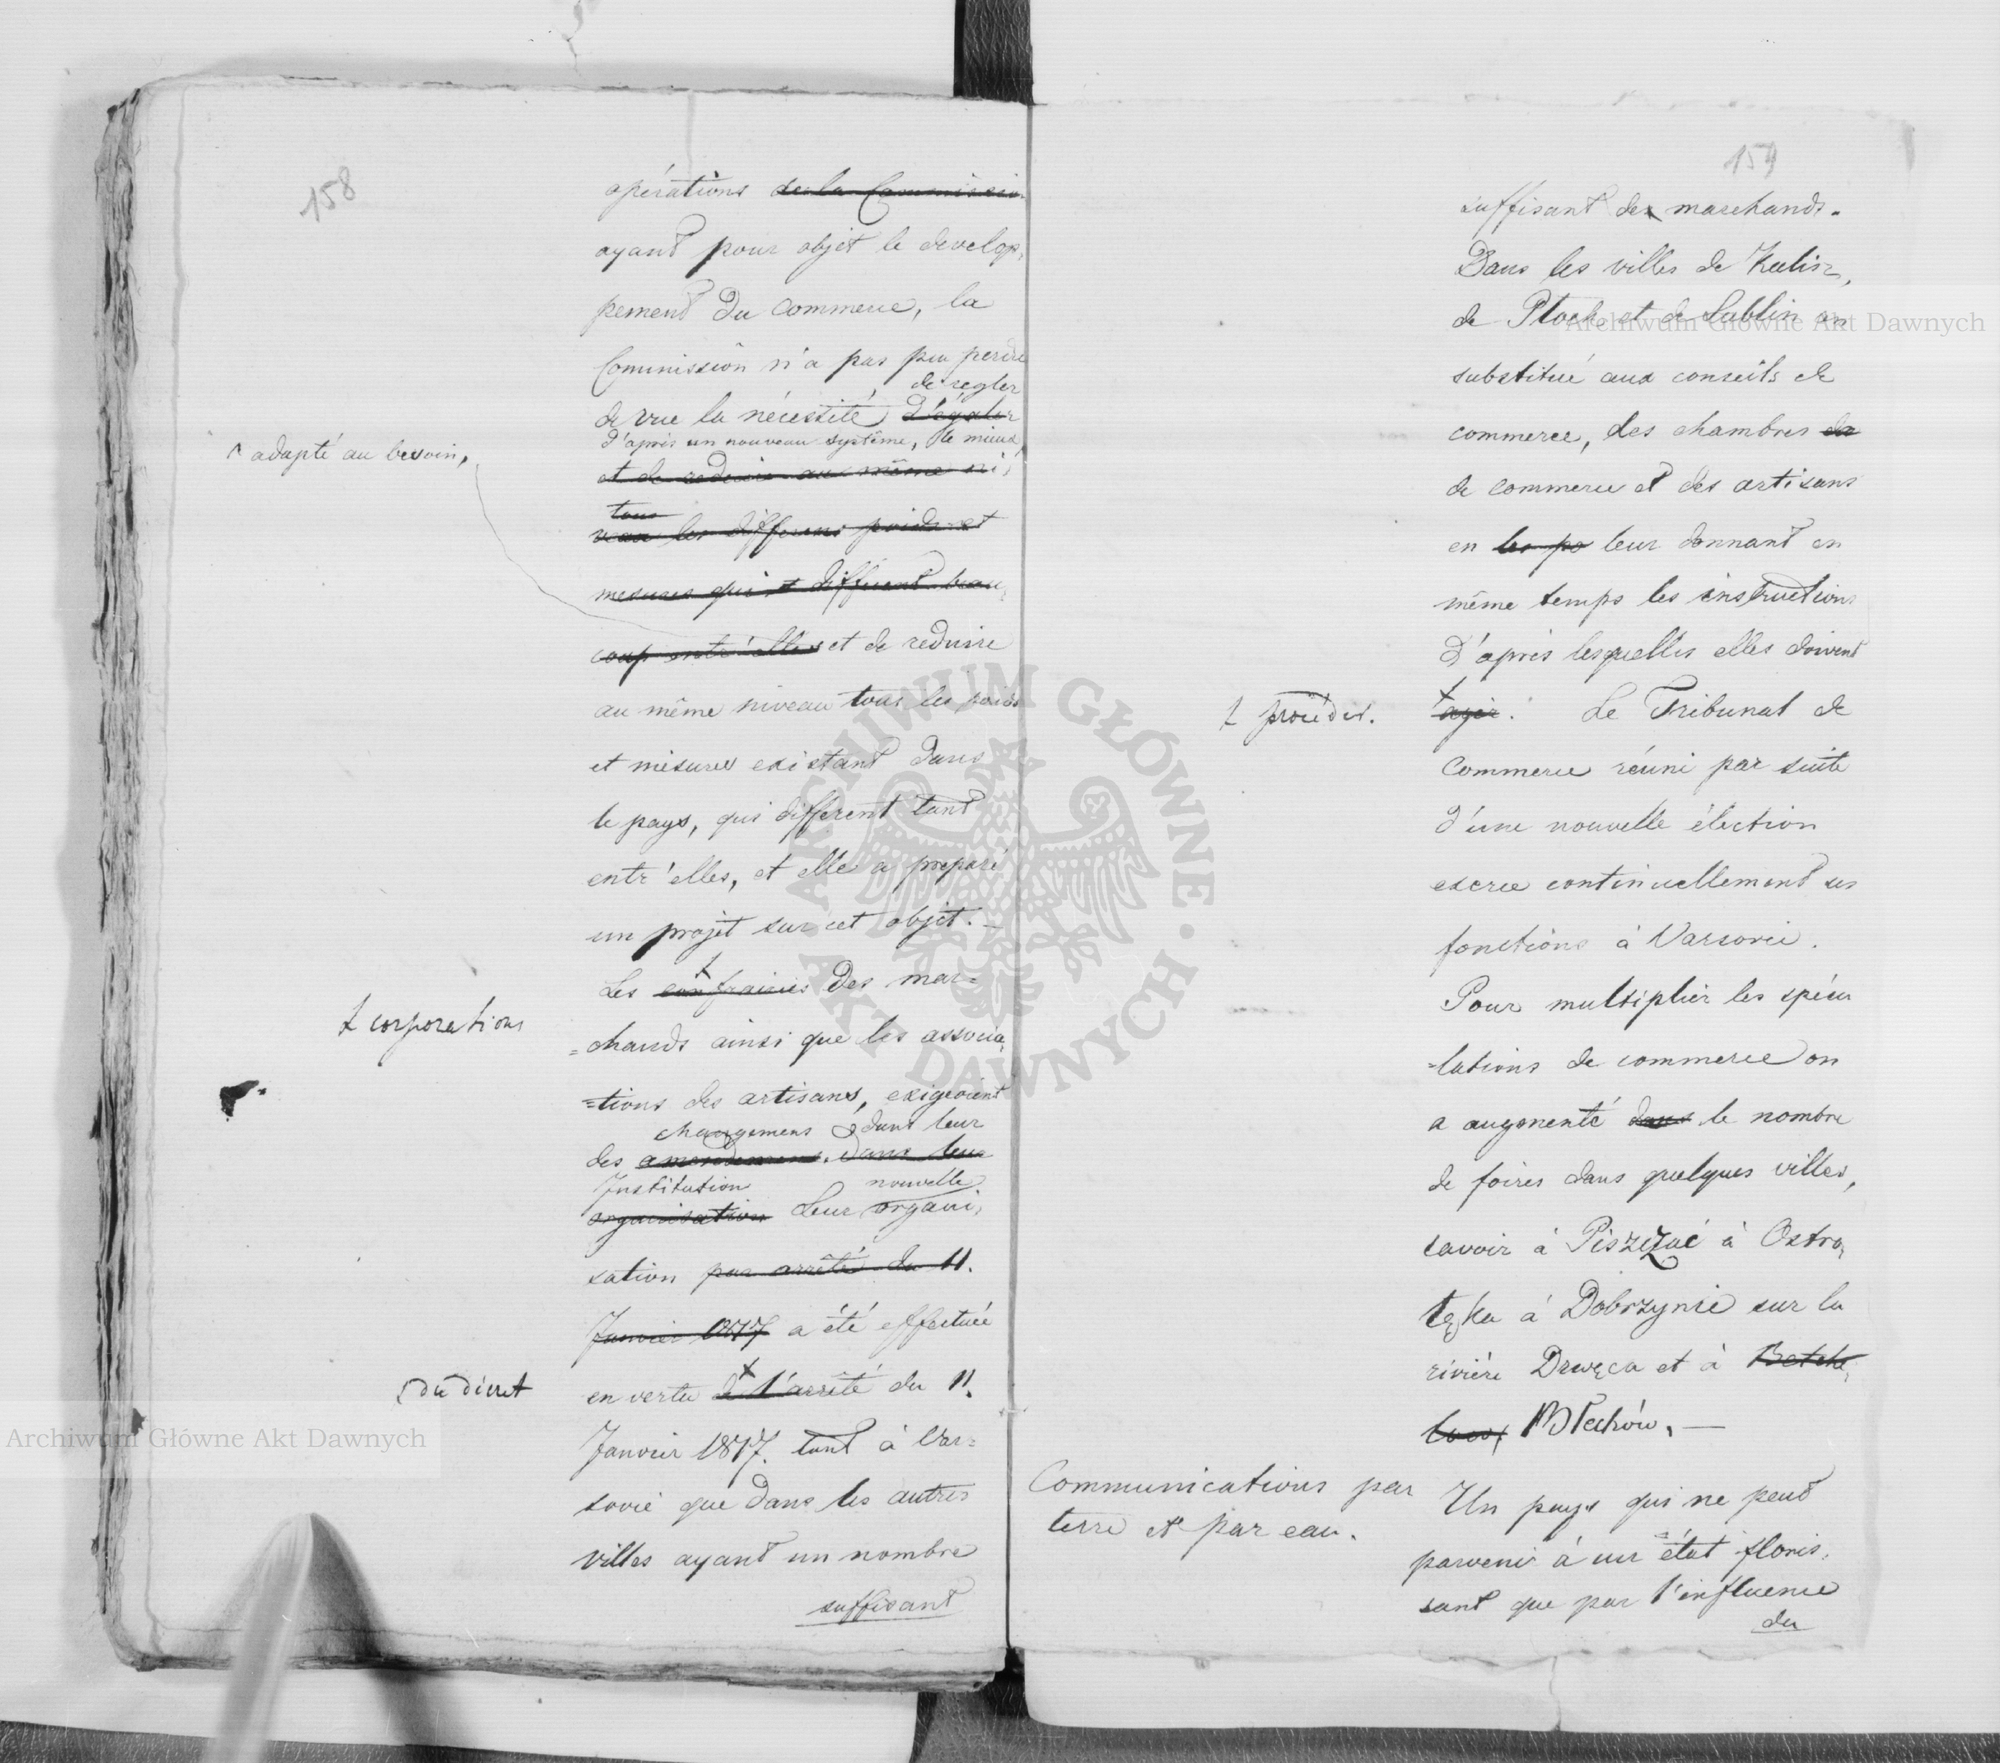 158
opérations de la Commission
ayant pour objet le develop,
pement du commerce, la
Commission n'a pas pu perdre
de regler
de vue la nécessité d'égaler
d'après un nouveau système, le mieux
^ adapté au besoin,
et de reduire au même ni,
tous
veau les differens poids et
mesures qui different beau,
coup entr'elles et de reduire
au même niveau tous les poids
et mesures existant dans
le pays, qui different tant
entr'elles, et elle a preparé
un projet sur cet objet. —
Les confrairies des mar=
ŧ corporations
=chands ainsi que les associa,
=tions des artisans, exigeoient
changemens dans leur
des amendemens dans leur
Institution nouvelle
organisation Leur organi,
sation par arrêté du 11.
Janvier 1817 a été effectuée
du décret
en vertu de l'arrêté du 11.
Janvier 1817. tant à Var=
sovie que dans les autres
villes ayant un nombre
suffisant
159
suffisant de marchands.
Dans les villes de Kalisz,
de Plock et de Lublin on
substitué aux conseils de
commerce, des chambres de
de commerce et des artisans
en les po leur donnant en
même temps les instructions
d'après lesquelles elles doivent
ŧ procéder.
agir. Le Tribunal de
Commerce réuni par suite
d'une nouvelle élection
exerce continuellement ses
fonctions à Varsovie.
Pour multiplier les spécu
=lations de commerce on
a augmenté dans le nombre
de foires dans quelques villes,
savoir à Piszczac à Ostro,
łęka à Dobrzynie sur la
rivière Drwęca et à Betche,
tow, Błechów. —
Communications par
terre et par eau.
Un pays qui ne peut
parvenir à un état floris,
sant que par l'influence
du
Archiwum Główne Akt Dawnych
Archiwum Główne Akt Dawnych
ARCHIWUM GŁÓWNE · AKT DAWNYCH ·